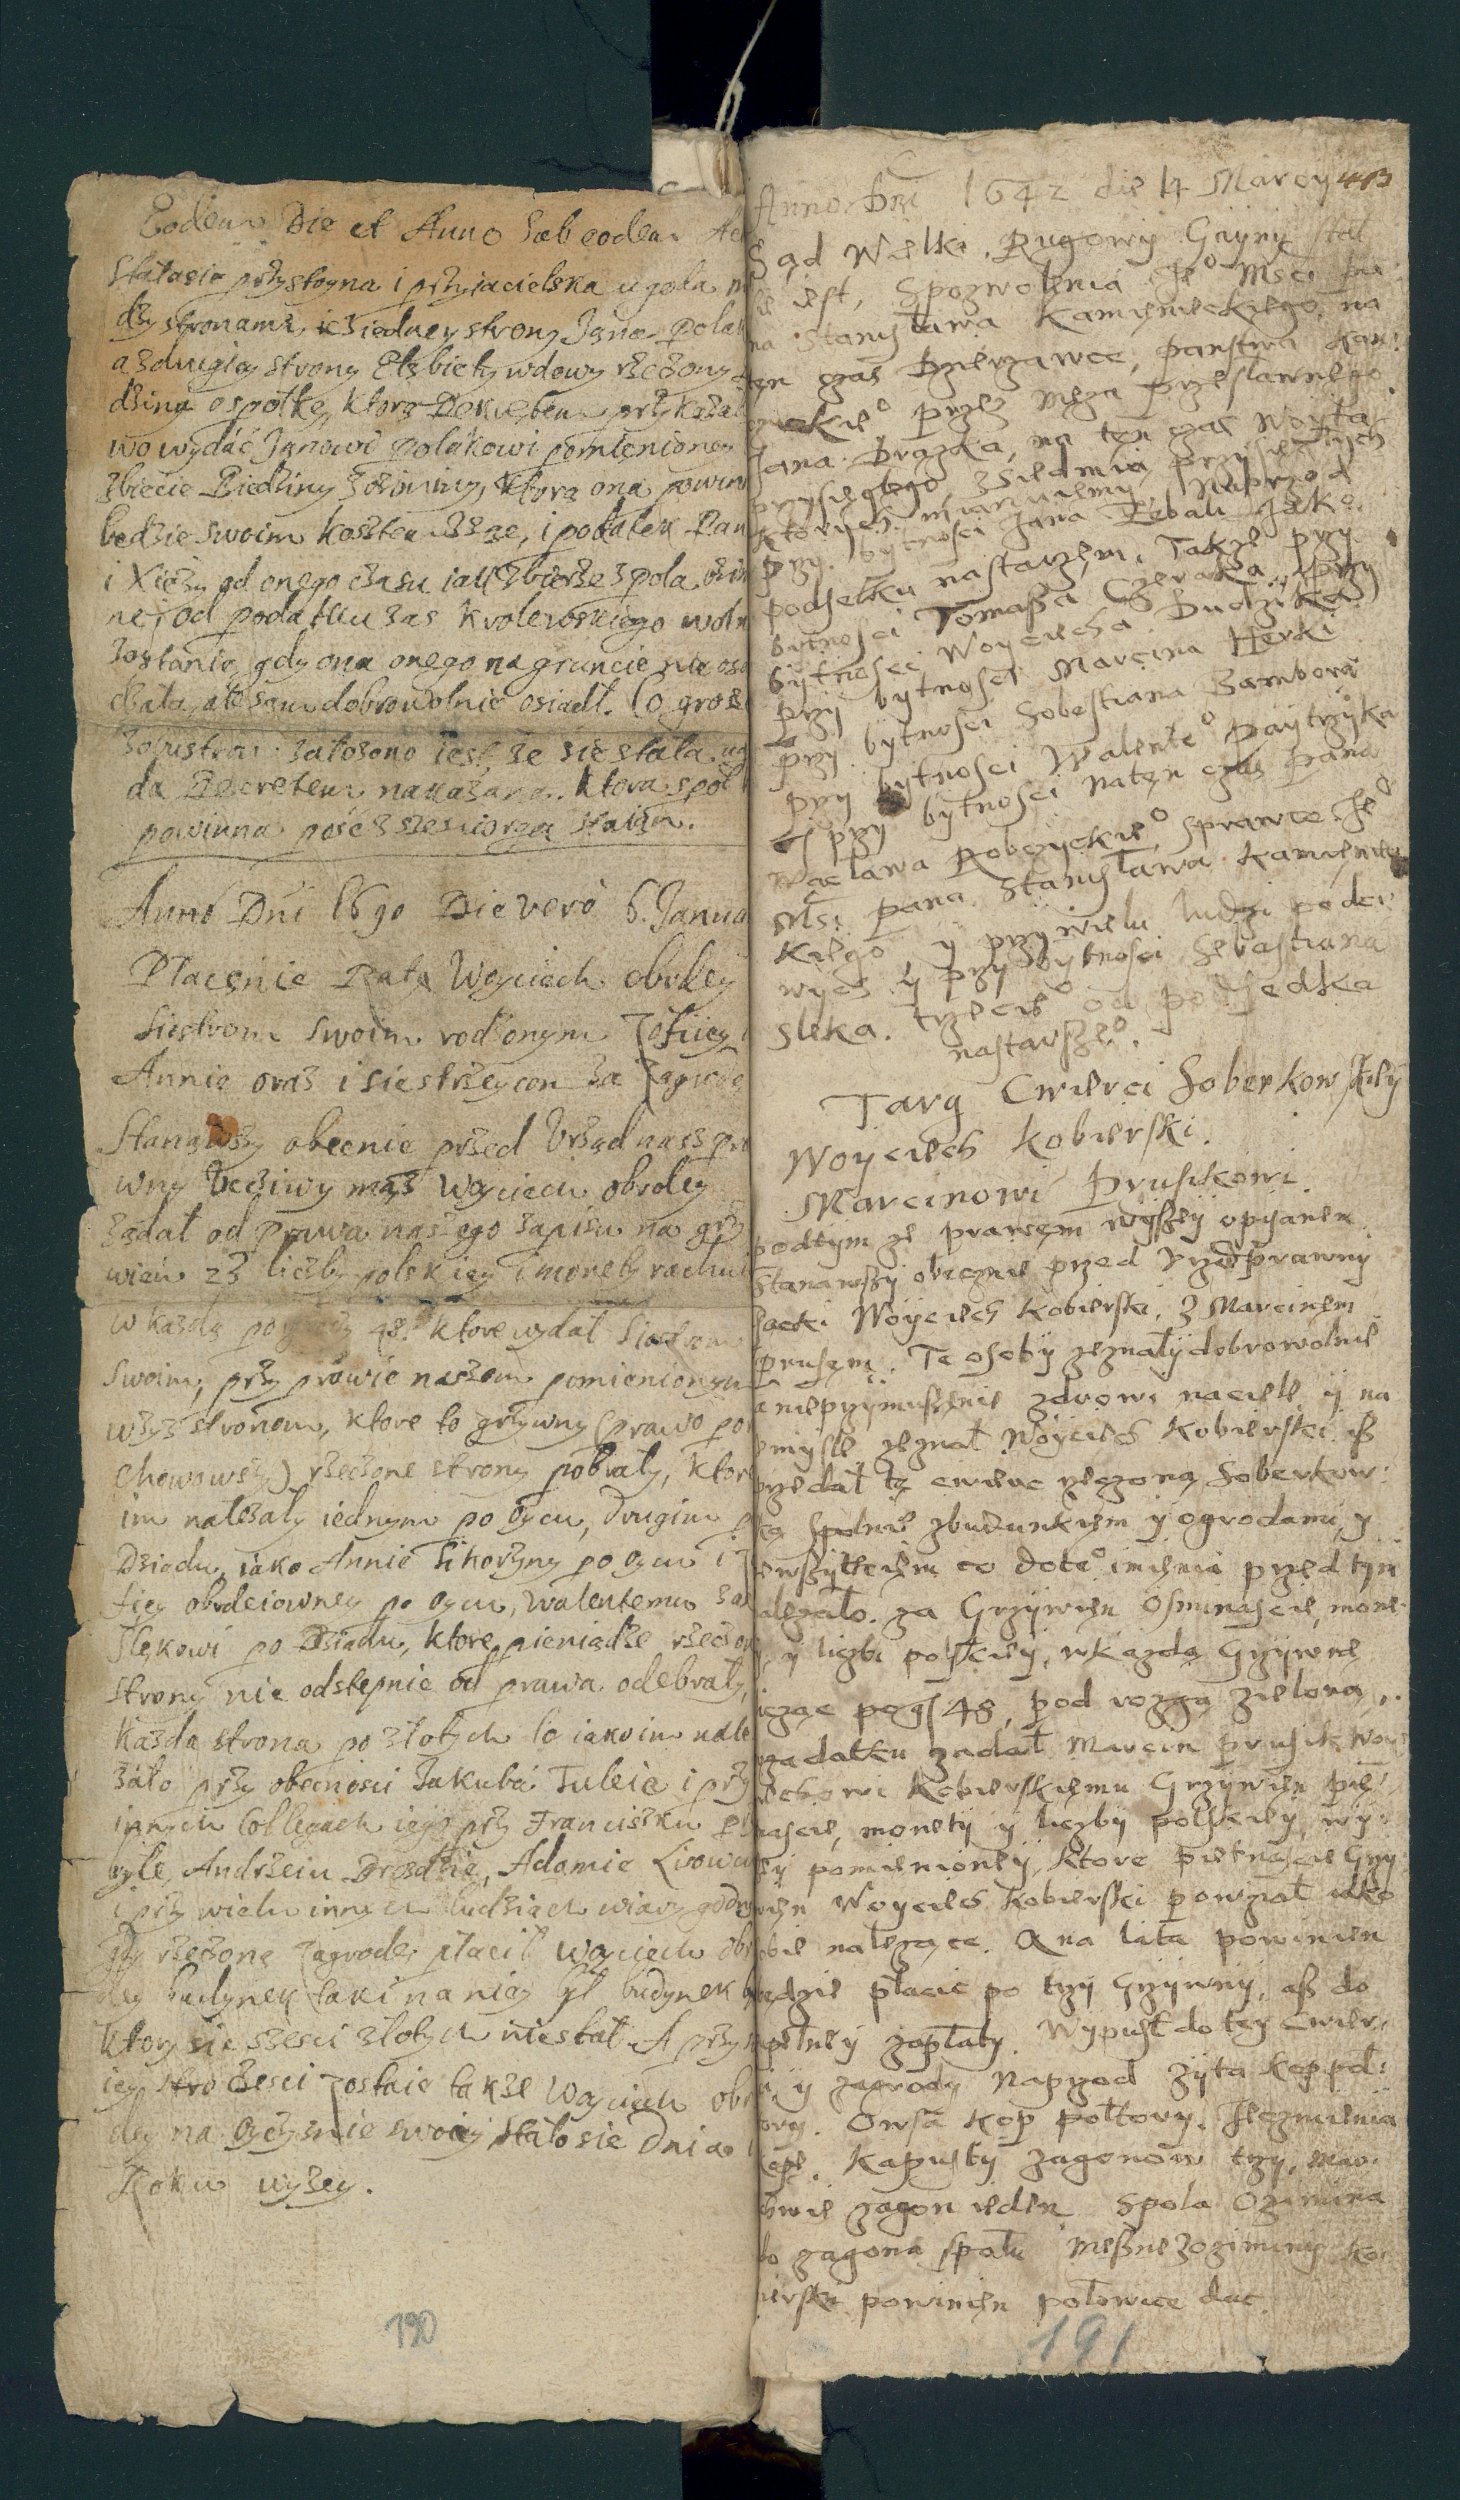 Eodem Die et Anno Sub eodem
Stałasię przystoyna i przyiacielska ugoda
dzy stronami, ie z iedney strony Jana polak
a zdrugiey strony Elzbiety wdowy rzeczony
dzina ospołkę, ktorą Dekretem przykazał
wo wydać Janowi polakowi pomienioney
zbiecie Piedziny żoziminy, ktorą ona powin
bedzie swoim kosztem zząc, i podatek Pan
i Xiędzu od onego czasu iak zbierze z pola ozim
nę, od podatku zas krolewskiego woln
zostanie, gdy ona onego na gruncie nie osa
dzała, ale sam dobrowolnie osiadł. Co grosz
założono iest, że się stała ug
da Decretem nakazana. ktora społ
powinna pość z szesciorga
Anno Dni 1690 Die vero 6. Janua
Płacenie Raty Woyciech obrdey
siestrom swoim rodzonym Zofiiey
Annie oraz i siestrzeycom za Zagrode
Stanąwszy obecnie przed Vrząd nasz pra
wny Vcziwy mąż Woyciech obrdey
żądał od Prawa naszego zapisu na grzy
wien 23 liczby polskiey i monety rachui
w każdą po groszy 48. ktore wydał Siostrom
swoim, przy prawie naszem pomienionym
wzyż stronom, ktore to grzywny (prawo po
chowawszy) rzeczone strony pobrały, ktore
im należały iednym po oycu, drugim p
Dziadu, iako Annie Sikorzyny po oycu i Z
fiey obrdeiowney po oycu, Walentemu zas
Slękowi po Dziadu, ktore pieniądze rzeczon
strony nie odstępnie od prawa. odebrały,
Każda strona po złotych 10 iako im nale
żało przy obecnosci Jakuba Tuleia i przy
innych Collegach iego przy Franciszku
byle, Andrzeiu Drozdzie, Adamie
i przy wielu innych ludziach wiary godny
gdy rzeczoną Zagrodę płacił Woyciech obr
dey budynek taki na niey był budynek
ktory się szesci złotych nie stał. A przy
iey częsci zostaie także Woyciech obr
dey na Oyczyznie swoiey stało się Dnia
Roku wyżey.
190
Anno Dni 1642 die 14 Marcy 413
Sąd Wielki Rugowy Gayny stał
się iest, Spozwolenia Je° Msci pa
na Stanisława Kamienieckiego, na
ten czas Dzierzawce, panstwa
przez męza przesławnego
Jana Drązka, na ten czas Woyta
przysięgłego, zsiedmią przysięznych
ktorych mianuiemy, Naprzod
przy bytnosci Jana Rebali Jako
podsetku nastarzem, Także przy
bytnosci Tomasza Czeraka, przy
bytnosci Woyciecha Dudzika
przy bytnosci Marcina Herki
przy bytnosci Sobestiana Zambora
przy bytnosci Walente° paytrzyka
y przy bytnosci naten czas pana
Wacława Robczyckie° Sprawce Je°
Msci pana Stanisława Kamieniec
kiego, y przy wielu ludzi
wych y przy bytnosci Sebastiana
Sleka. trzecie° podsedka
nastarsze°.
Targ Cwierci Soberkowskiey
Woyciech Kobierski.
Marcinowi Prusikowi.
podtym ze prawem wyszey opisanem
Stanąwszy obecznie przed Vrząd prawny
Woyciech Kobierski, Z Marcinem
Prusem. Te osoby zeznały dobrowolnie
a nieprzymuszenie zdrowi naciele y na
vmysle zeznał Woyciech Kobierski isz
przedał tę cwierc rzeczoną Soberkow
ką Spolnie zbudunkiem y ogrodami, y
wszytkiem co dote° imienia przed tym
alezało. za Grzywien Osmnascie, mone
y liczbi polskiey, wkazdą Grzywnę
icząc po gs 48, pod rozgą zieloną,
zadatku zadał Marcin prusik Woy
ciechowi Kobierskiemu Grzywien pię
nascie, monety y liczby polskiey, wy
szy pomienioney, ktore piętnascie Grzy
wien Woyciech Kobierski powziął iako
obie nalezące. A na lata powinien
będzie płacic po trzy Grzywny, asz do
zapełney zapłaty. Wypust do tey cwier
ci, y zagrody Naprzod zyta kop poł
tory. Owsa kop połtory. Jęczmienia
kopę. Kapusty zagonow trzy, mar
chwie zagon ieden Spola Ozimina
do zagona społu Meszne zoziminy ko
bierski powinien połowice dac
191